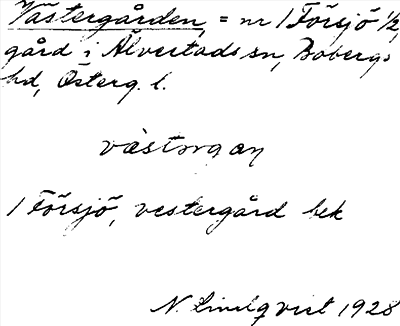 Västergården, = nr 1 Försjö 1/2,
gård i Älvestads sn, Bobergs
hd, Österg. l.
västərgan
1 Försjö, vestergård bek
N. Lindqvist 1928